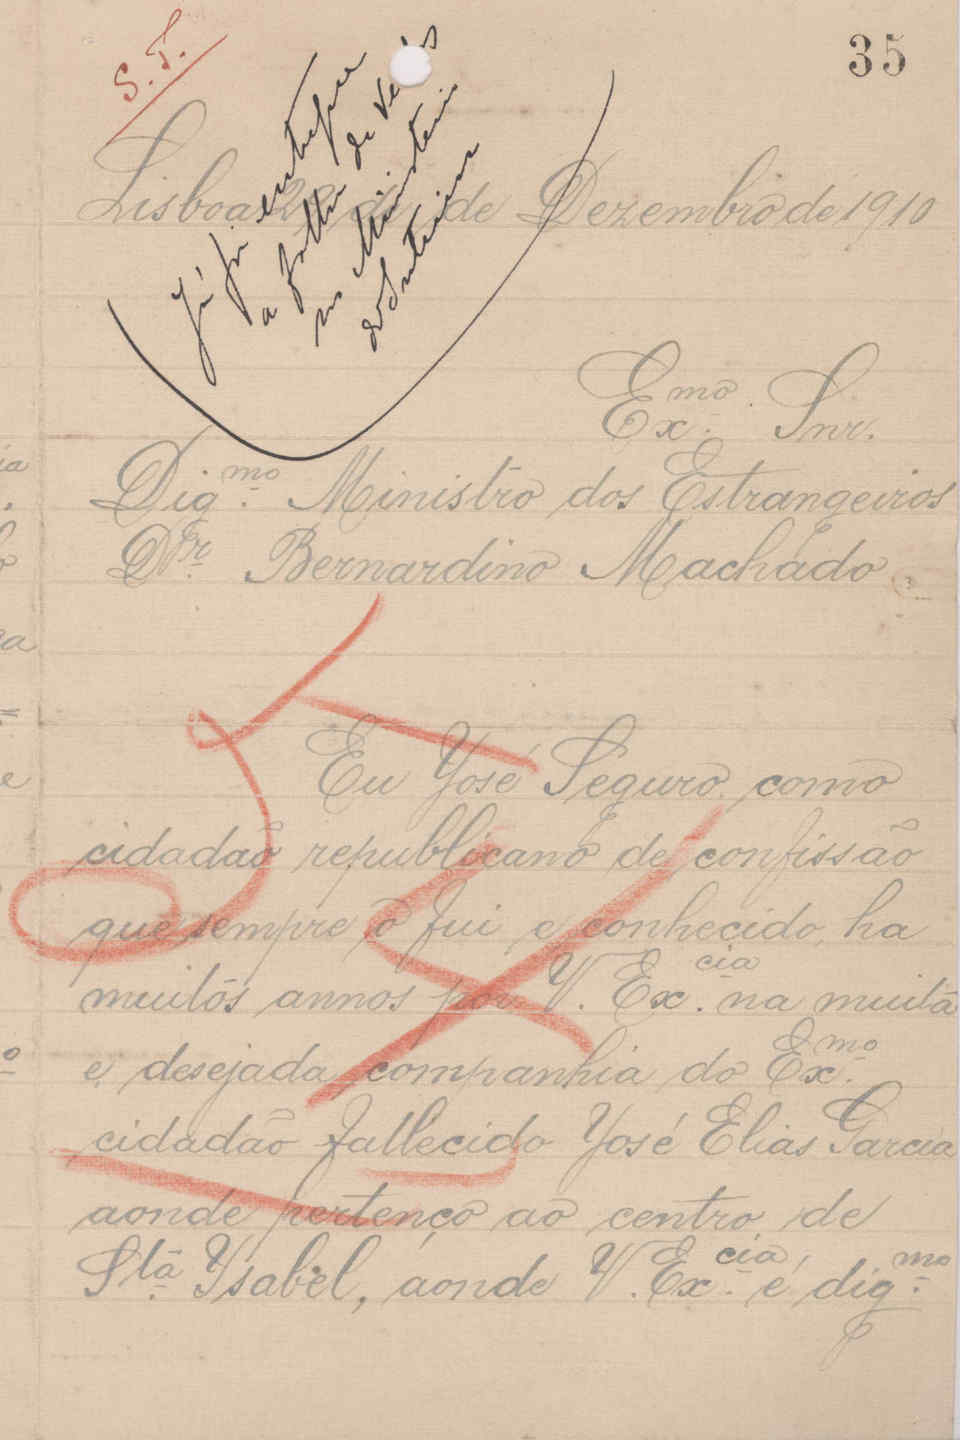 35
S. T.
Já foi entregue
a folha de
no Ministerio
do Interior
Lisboa de Dezembro de 1910
Ex.mo Snr.
Dig.mo Ministro dos Estrangeiros
Dr. Bernardino Machado
Eu José Seguro como
cidadão republicano de confissão
que sempre o fui e conhecido ha
muitos annos por V. Ex.cia na muita
e desejada companhia do Ex.mo
cidadão fallecido José Elias Garcia
aonde pertenço ao centro de
Sta Ysabel, aonde V. Ex.cia é dig.mo